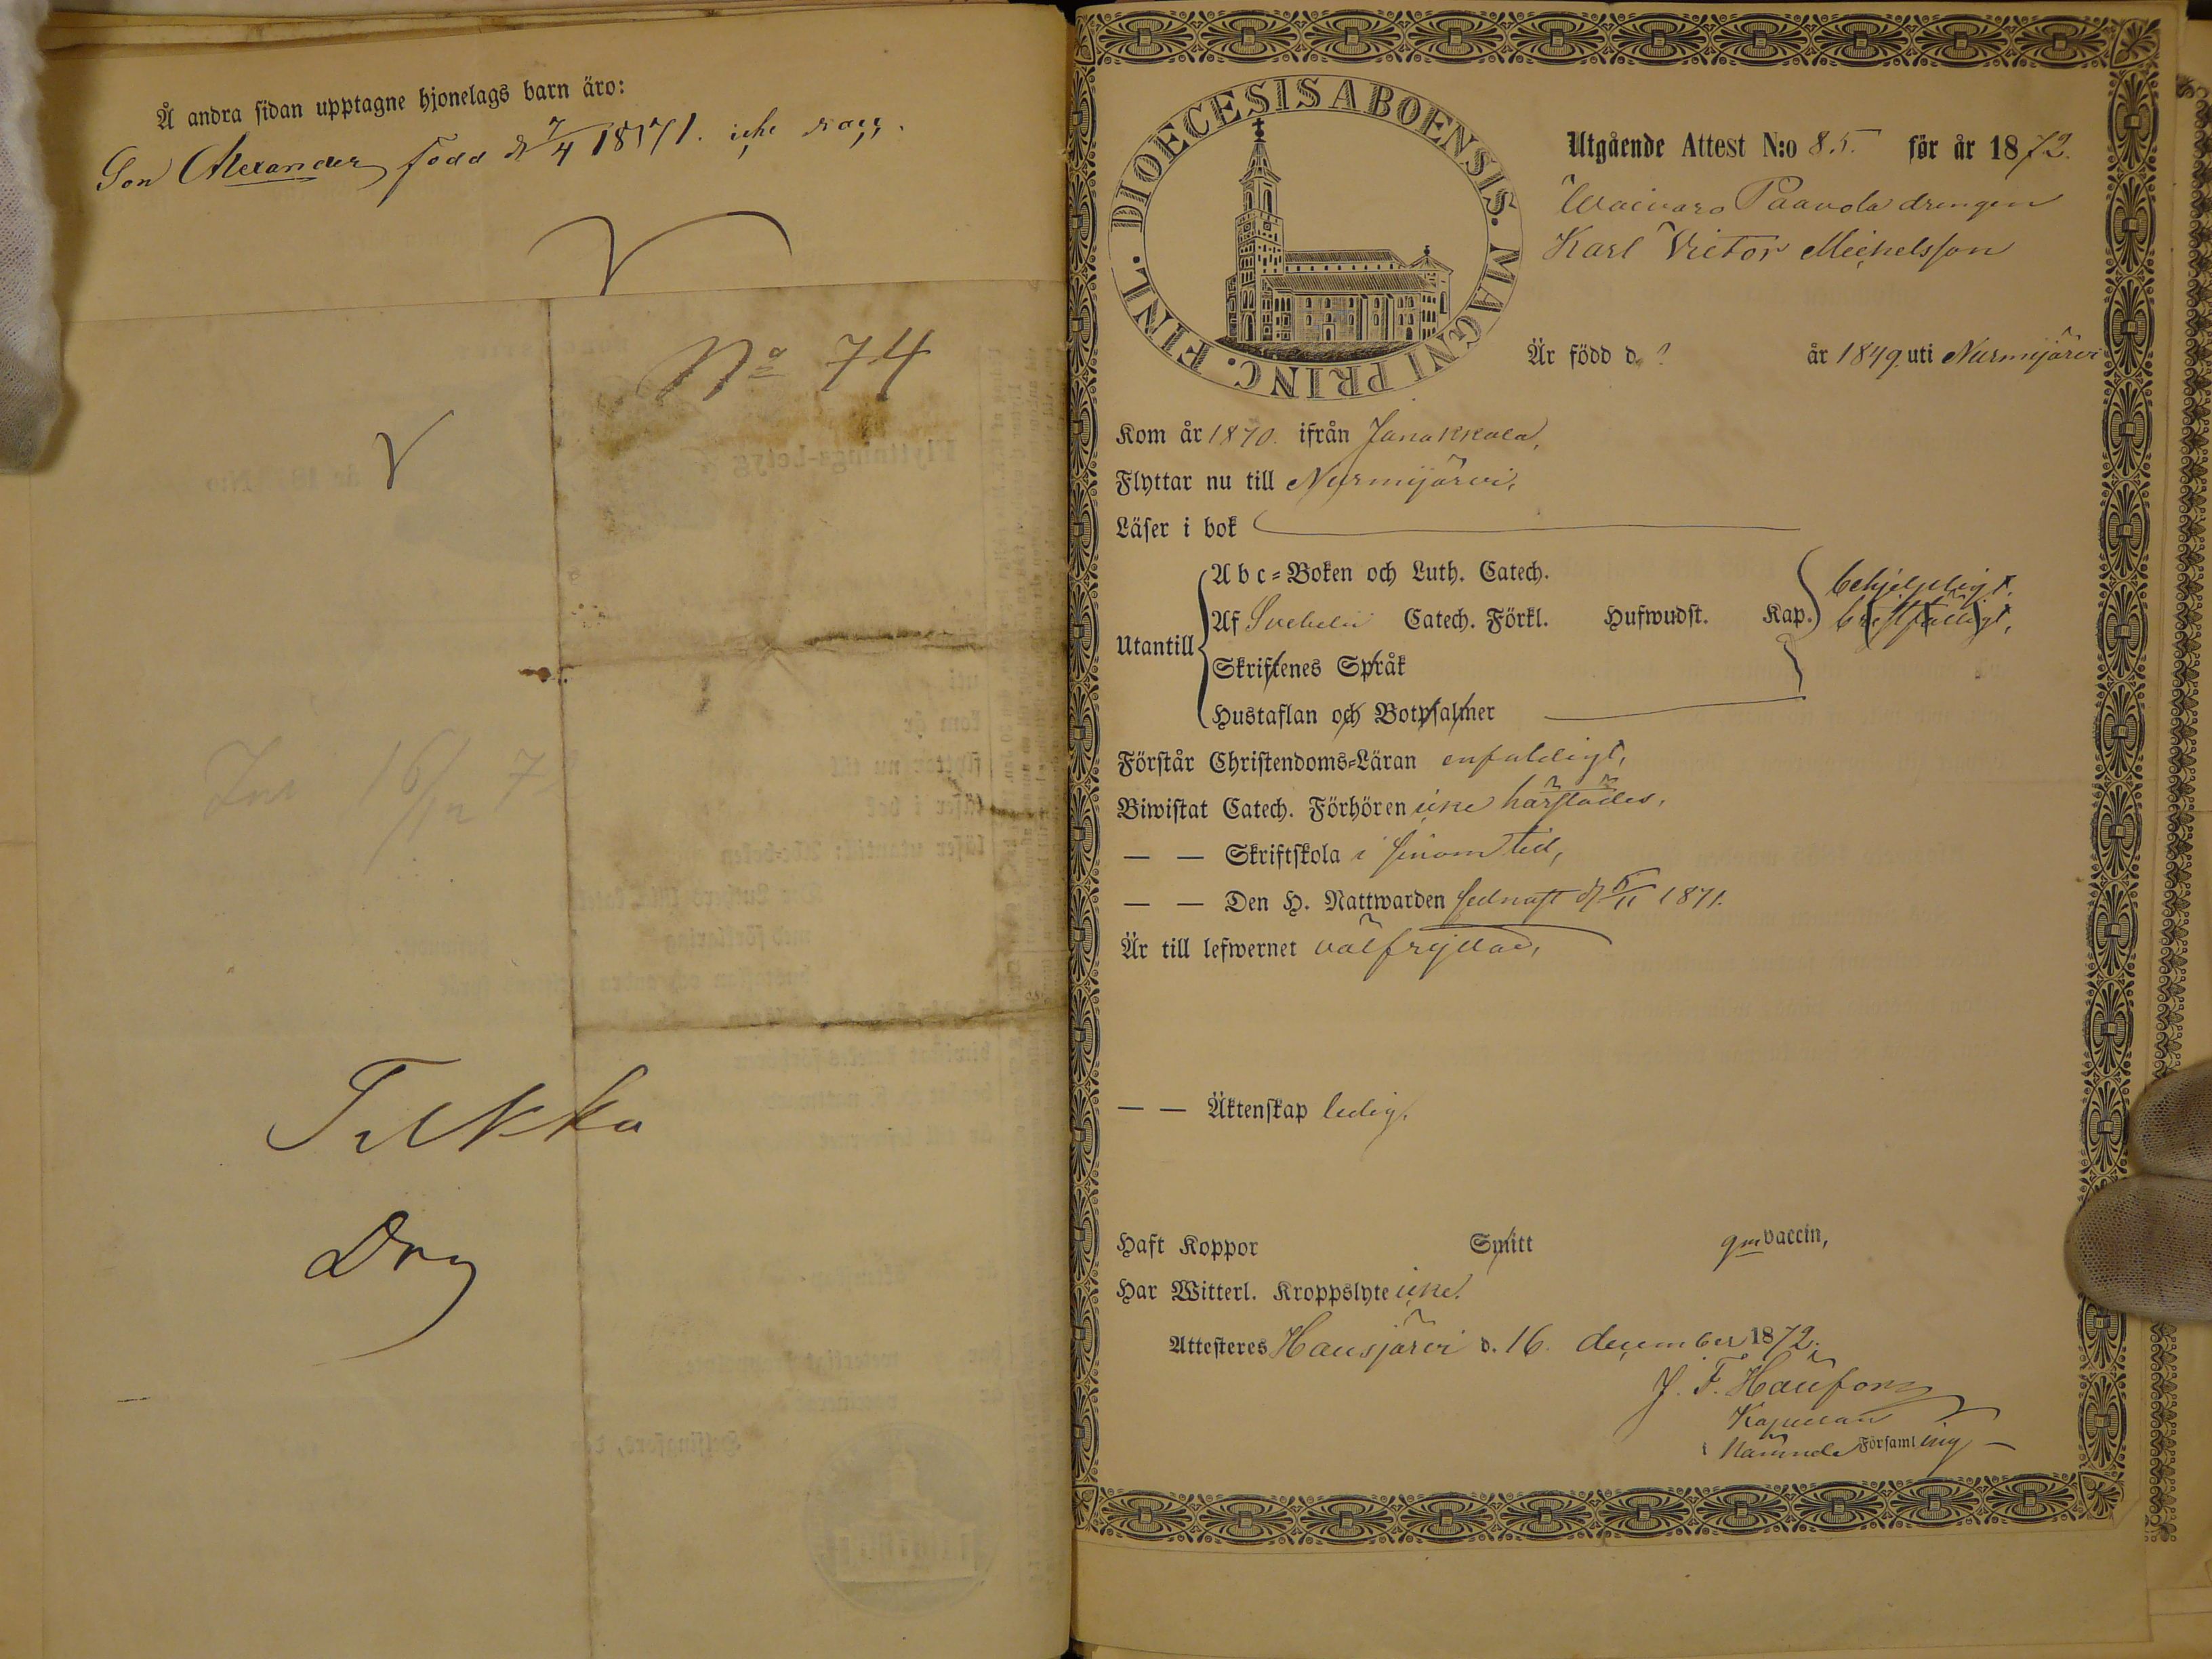 Å andra sidan upptagne hjonelags barn äro:
Son Alexander född d 7/4 1871. icke vacc.
No 74
Ins 16/12 72
Tukka
Drg
DIOECESIS ABOENSIS. MAGNI PRINC. FINL.
Utgående Attest N:o 85. för år 1872.
Paavola drengen
Karl Victor Michelsson
Är född d. ? år 1849. uti Nurmijärvi
Kom år 1870. ifrån Janakkala,
Flyttar nu till Nurmijärvi,
Läser i bok
Utantill
Abc-Boken och Luth. Catech.
Af Svebelii Catech. Förkl. Hufwudst. Kap.
behjelpligt,
bristfälligt,
Skriftenes Språk
Hustaflan och Botpsalmer
Förstår Christendoms-Läran enfaldigt,
Biwistat Catech. Förhören icke härstädes,
— — Skriftskola i sinom tid,
— — Den H. Nattwarden sednast d 5/11 1871.
Är till lefwernet välfrejdad,
— — Äktenskap ledig,
Haft Koppor Smitt gm vaccin,
Har Witterl. Kroppslyte icke.
Attesteres Hausjärvi d. 16. december 1872.
J. F.
Kapellan
i Nämnde Församling